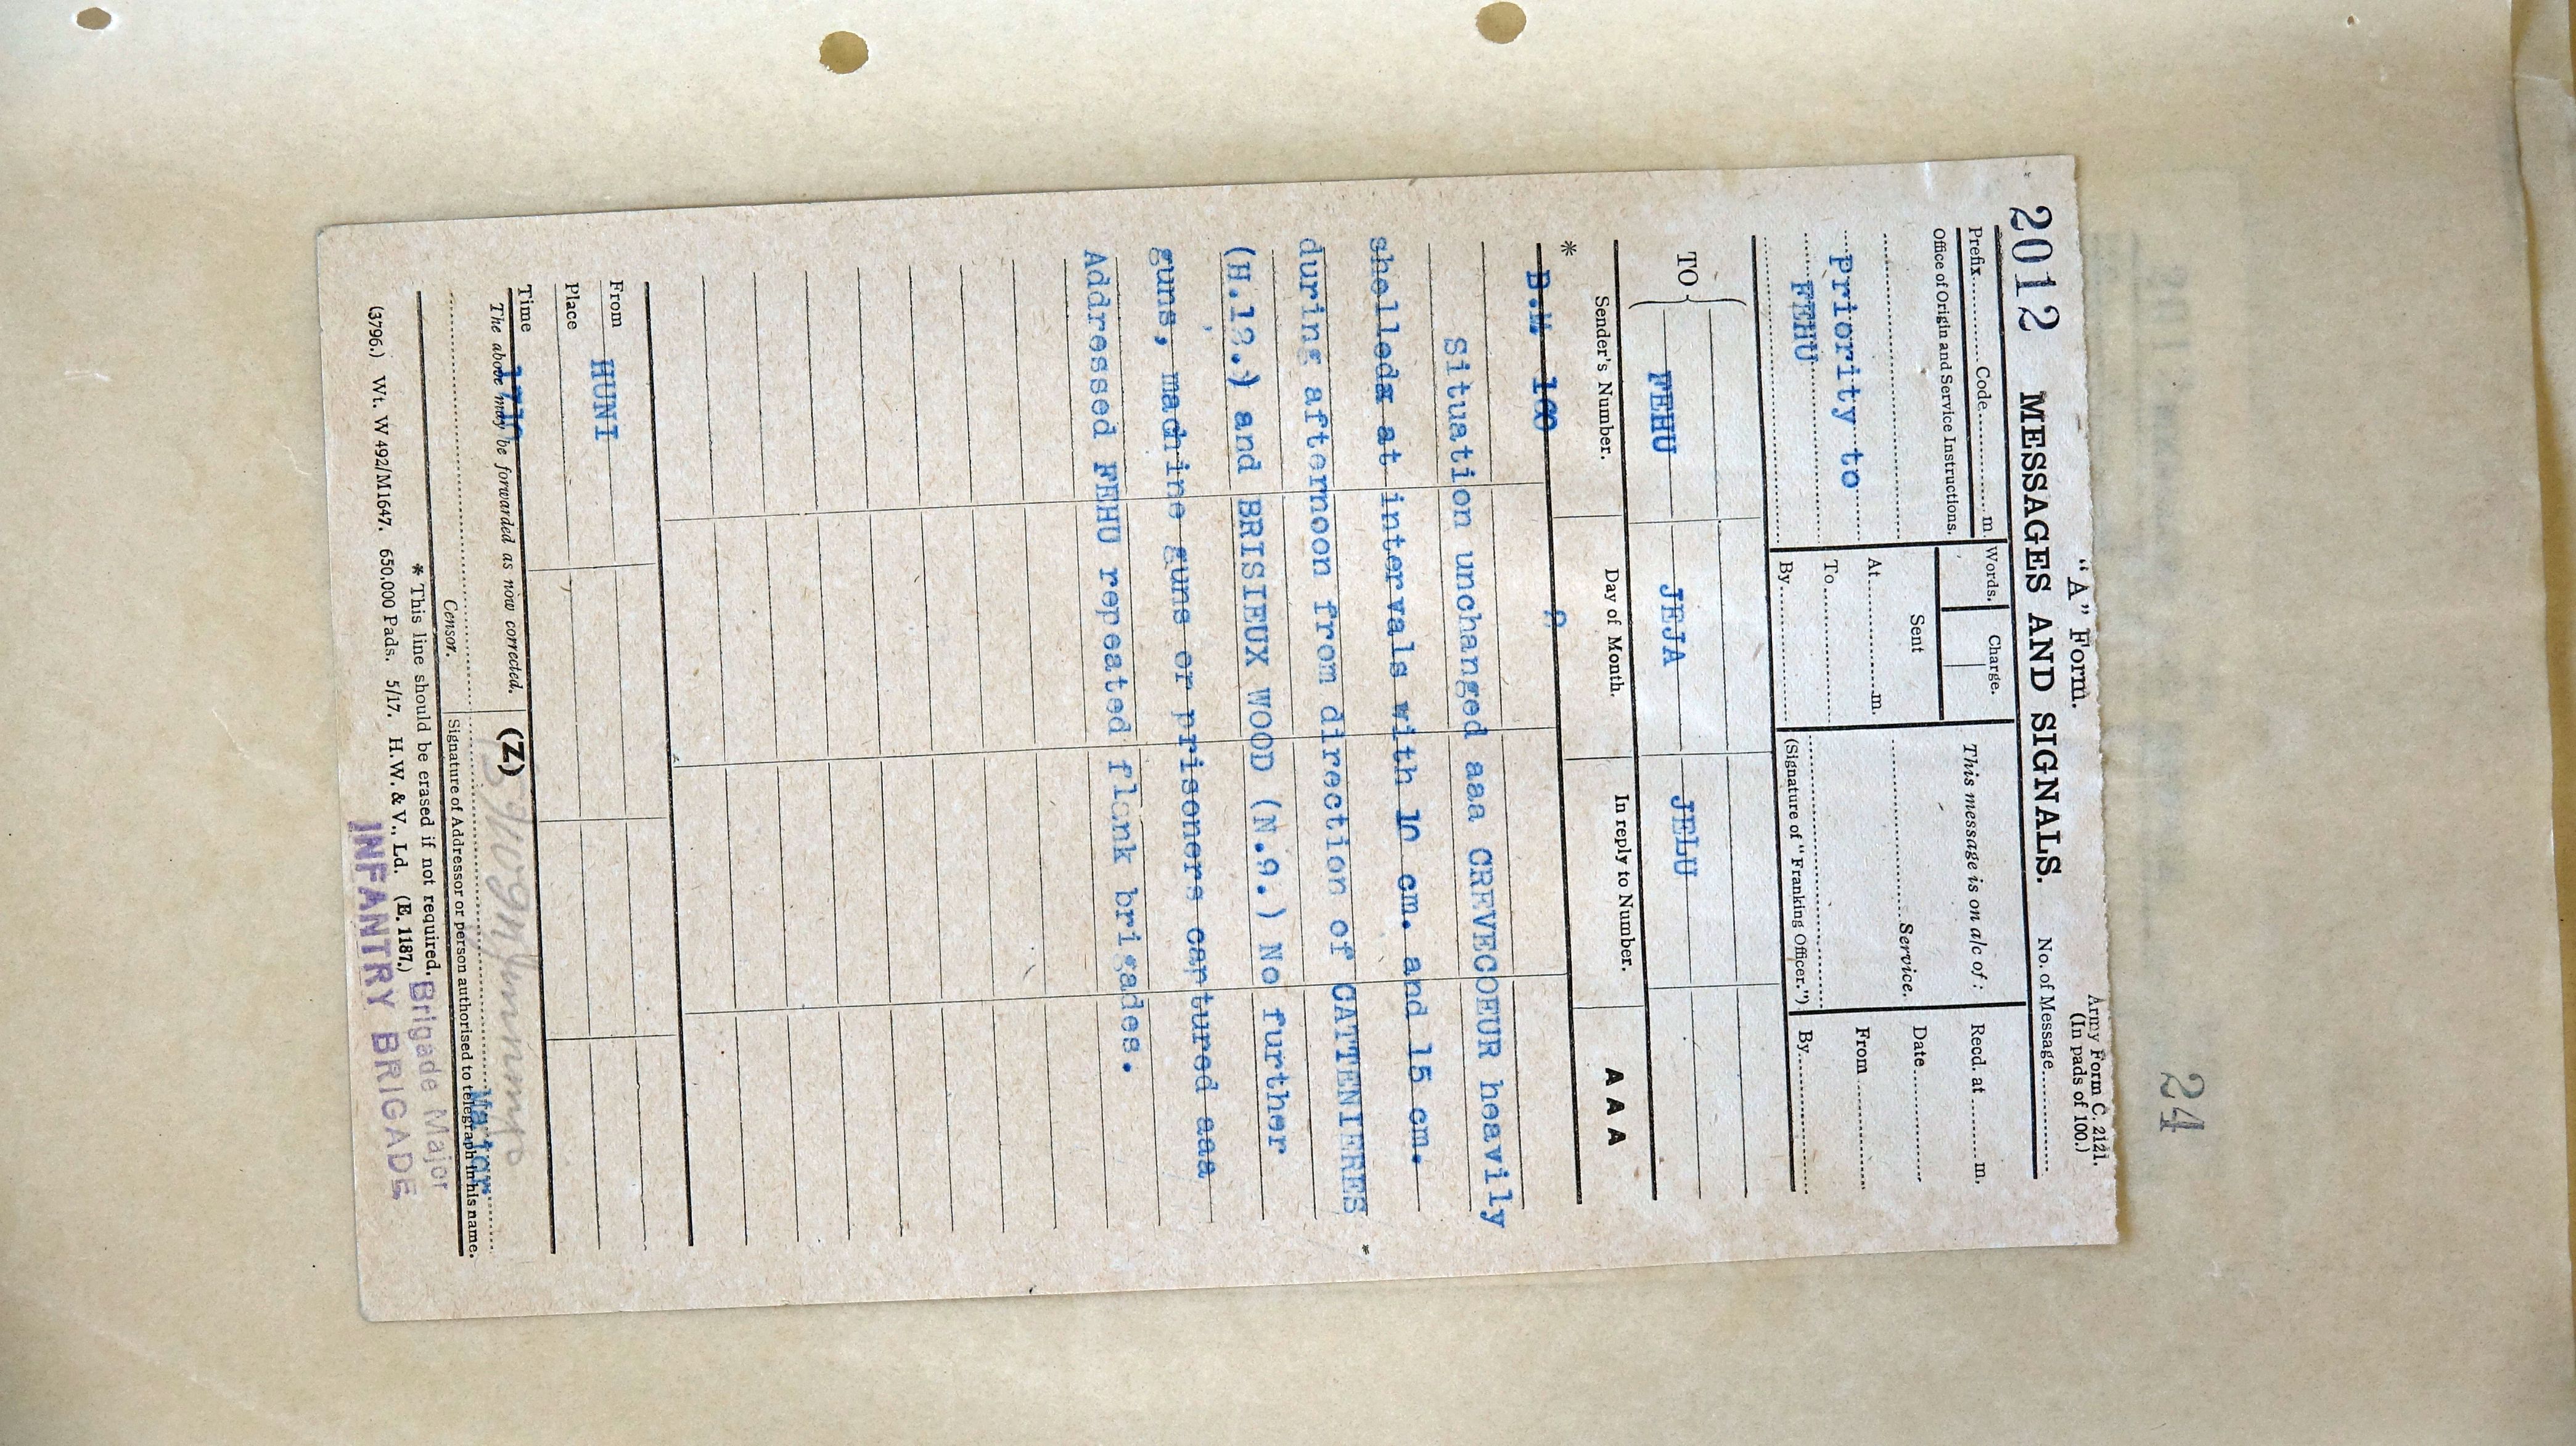 24
"A" Form.
Army Form C. 2121.
(In pads of 100.)
2012 MESSAGES AND SIGNALS. No. of Message
Prefix Code m. Words. Charge. This message is on a/c of: Recd. at m.
Office of Origin and Service Instructions. Sent Service. Date
Priority to At m. From
FEHU To By
By (Signature of "Franking Officer.")
TO FEHU JEJA JELU
Sender's Number. Day of Month. In reply to Number. AAA
* B.M 100
Situation unchanged aaa CREVECOEUR heavily
shelleda at intervals with 10 cm. and 15 cm.
during afternoon from direction of CATTENIERES
(H.12.) and BRISIEUX WOOD (N.9.) No further
guns, machine guns or prisoners captured aaa
Addressed FEHU repeated flank brigades.
From HUNI
Place
Time 1710
The above may be forwarded as now corrected. (Z)
Major
Censor. Signature of Addressor or person authorised to telegraph in his name.
* This line should be erased if not required. Brigade Major
(3796.) Wt. W 492/M1647. 650,000 Pads. 5/17. H.W. & V., Ld. (E. 1187.)
INFANTRY BRIGADE